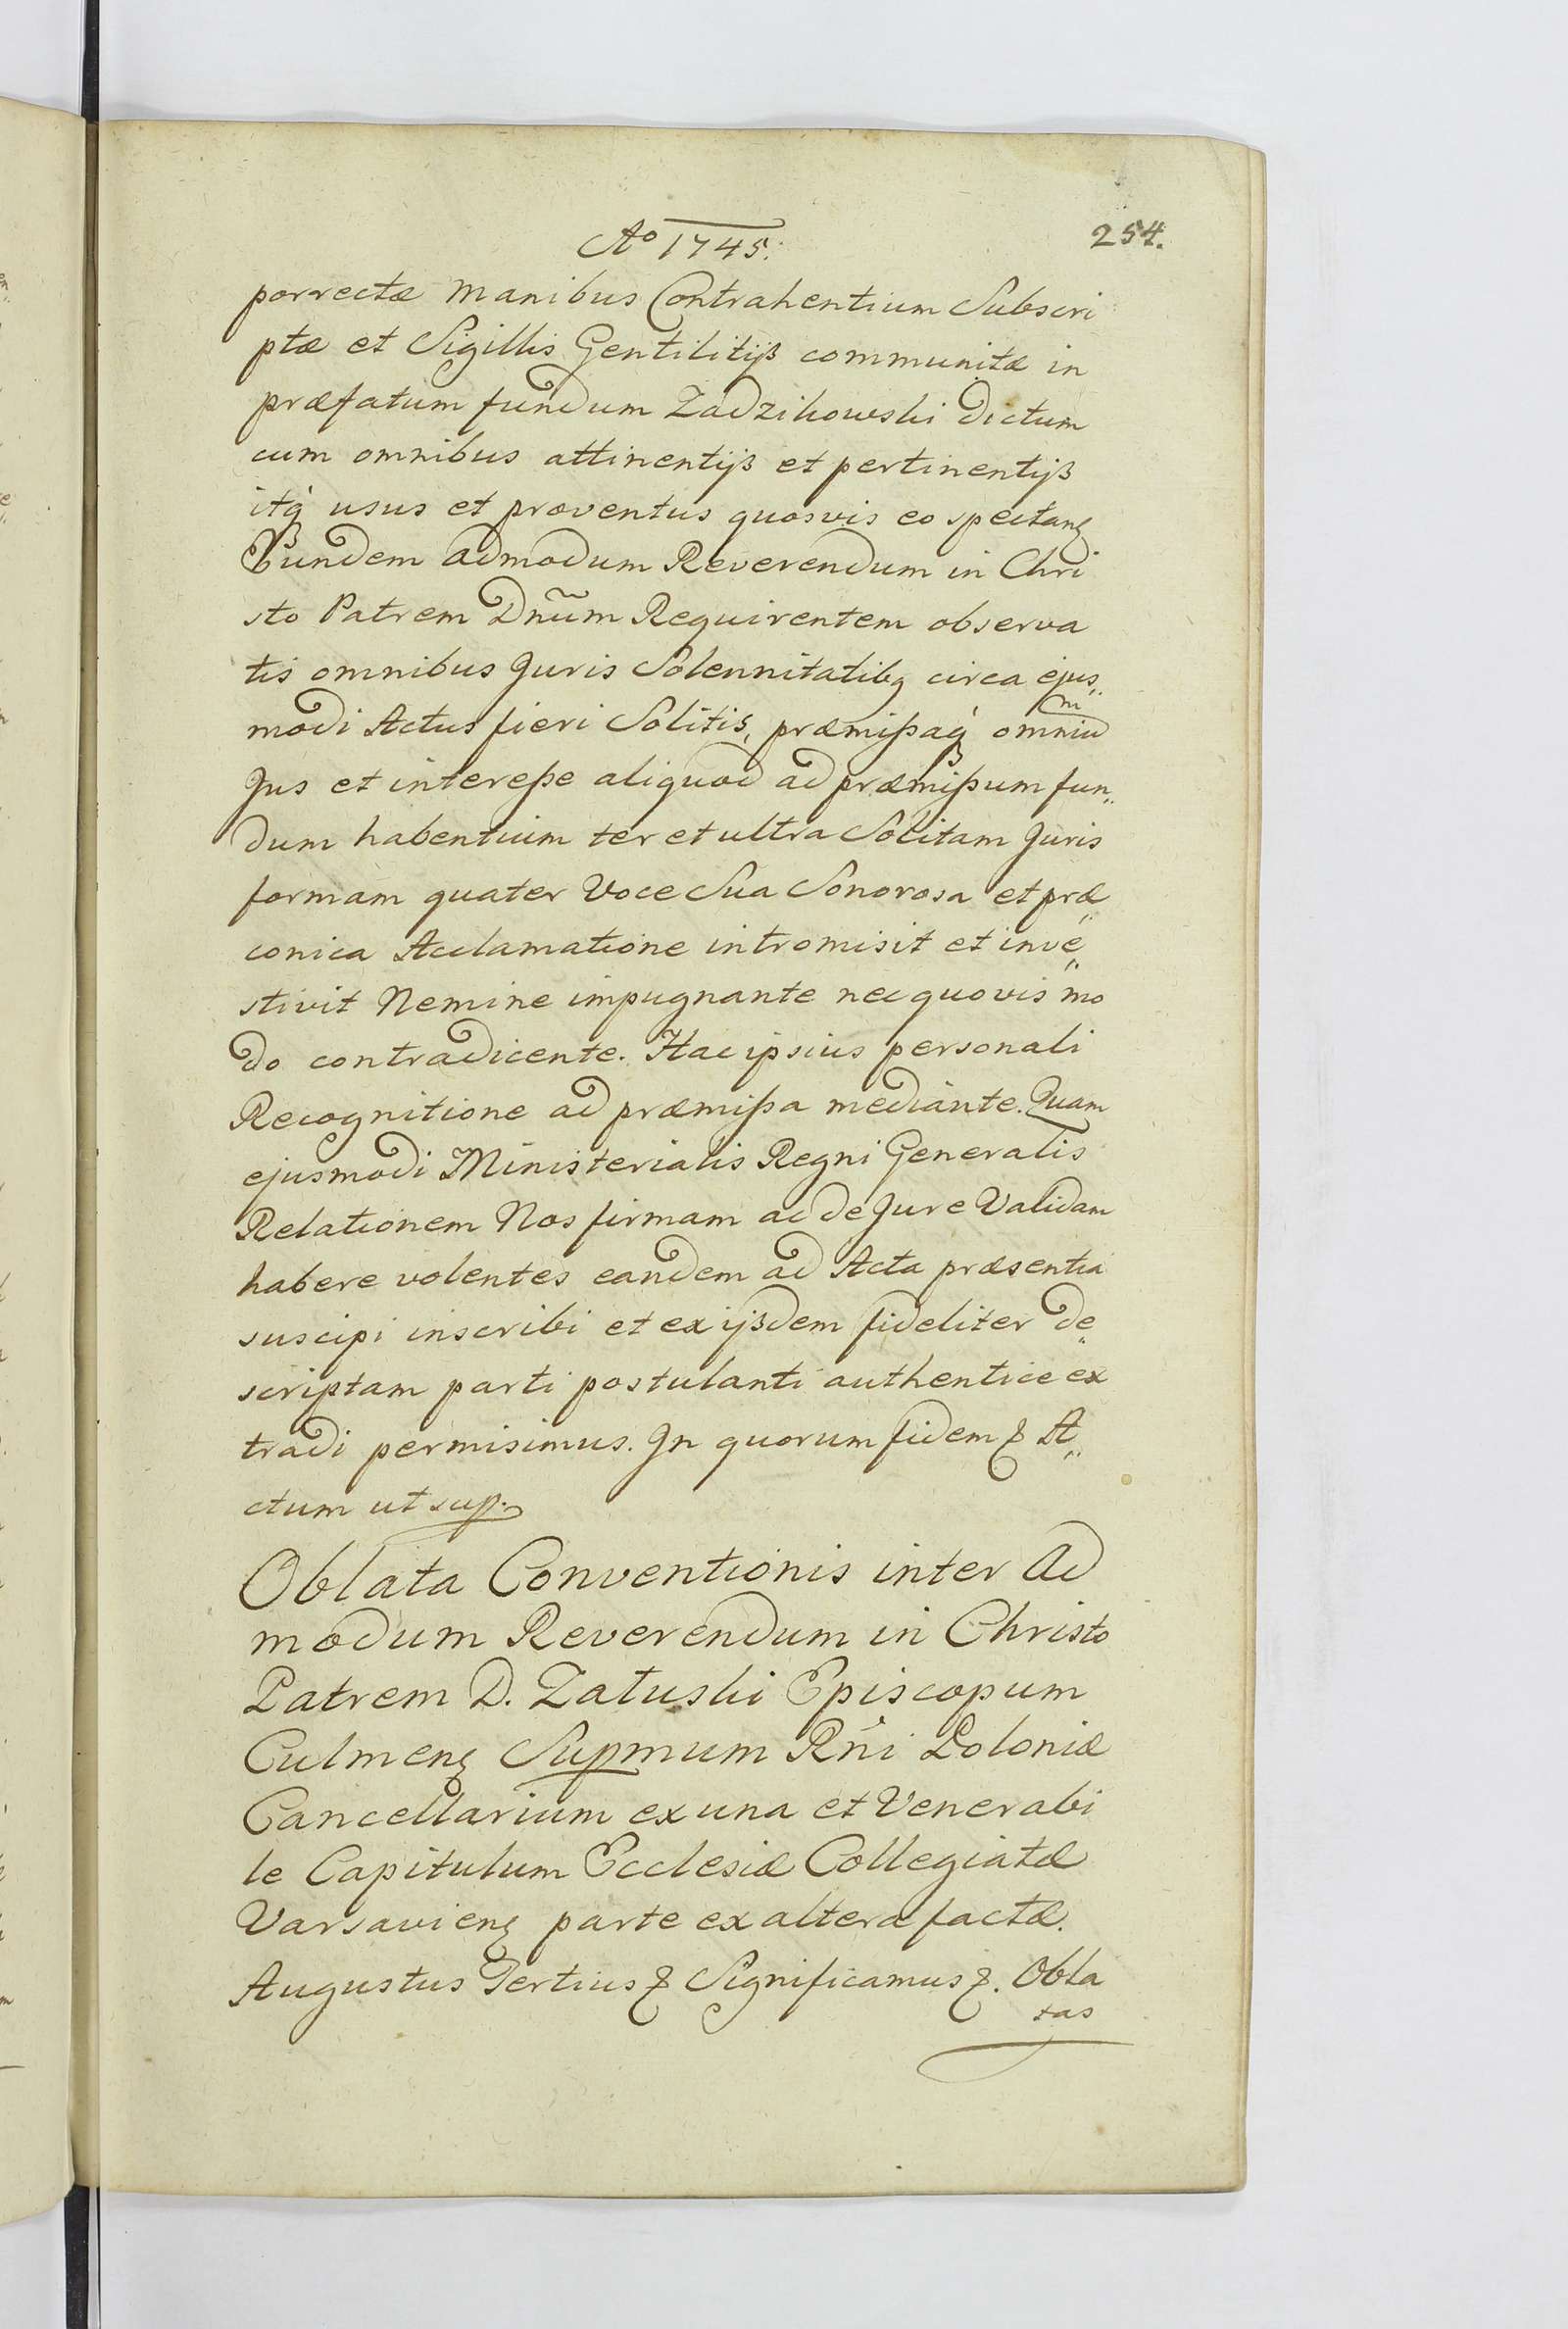 Ao 1745.
254.
porrectæ manibus Contrahentium Subscri
ptæ et Sigillis Gentilitijs communitæ in
præfatum fundum Zadzikowski dictum
cum omnibus attinentijs et pertinentijs
itq́ usus et proventus quosvis eo spectanę
Eundem admodum Reverendum in Chri
sto Patrem Dnũm Requirentem observa
tis omnibus Juris Solennitatibq circa ejus„
modi Actus fieri Solitis, præmißaq́ omniu
m
Jus et intereße aliquod ad præmißum fun„
dum habentium ter et ultra Solitam Juris
formam quater Voce Sua Sonorosa et præ„
conica Acclamatione intromisit et inve„
stivit Nemine impugnante nec quovis mo
do contradicente. Hac ipsius personali
Recognitione ad præmißa mediante. Quam
ejusmodi Ministerialis Regni Generalis
Relationem Nos firmam ac de Jure Validam
habere volentes eandem ad Acta præsentia
suscipi inscribi et ex ijsdem fideliter de„
scriptam parti postulanti authentice ex
tradi permisimus. In quorum fidem & A„
ctum ut sup.
Oblata Conventionis inter Ad
modum Reverendum in Christo
Patrem D. Załuski Episcopum
Culmenę Supmum Rńi Poloniæ
Cancellarium ex una et Venerabi
le Capitulum Ecclesiæ Collegiatæ
Varsavienę parte ex altera factæ.
Augustus Tertius & Significamus &. Obla
tas